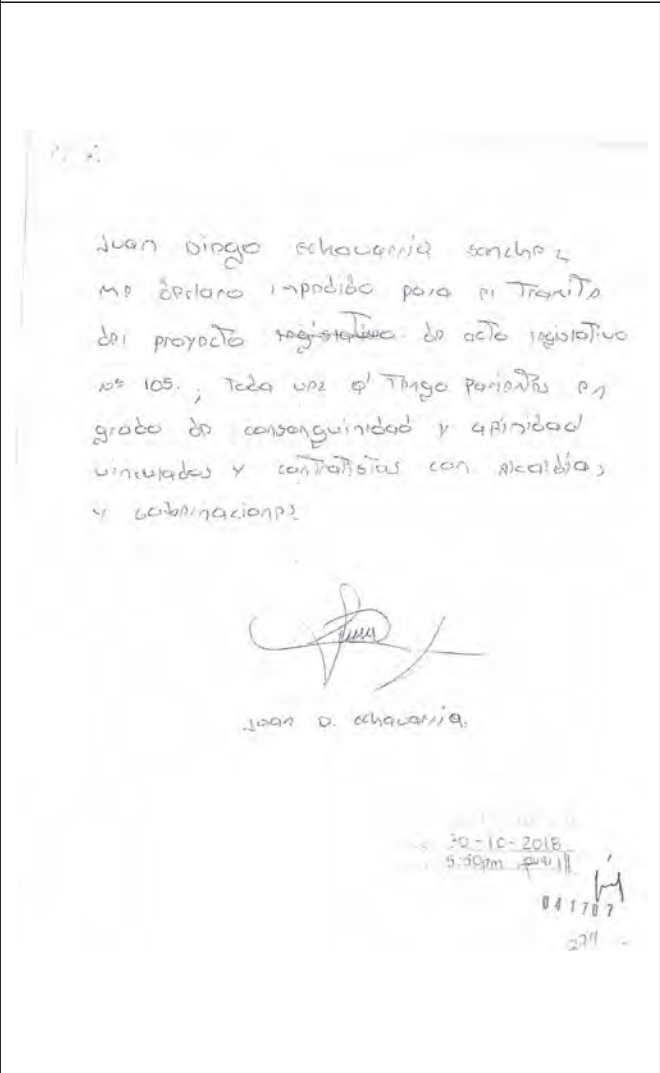 Juan Diego Echavarria Sanchez
me declaro impedido para el Tramite
del proyecto legislativo de acto legislativo
Nº 105., Toda vez q' Tengo parientes en
grado de consanguinidad y afinidad
vinculados y contratistas con Alcaldias
y Gobernaciones
Juan D. Echavarria.
30-10-2018
5:50pm
041707